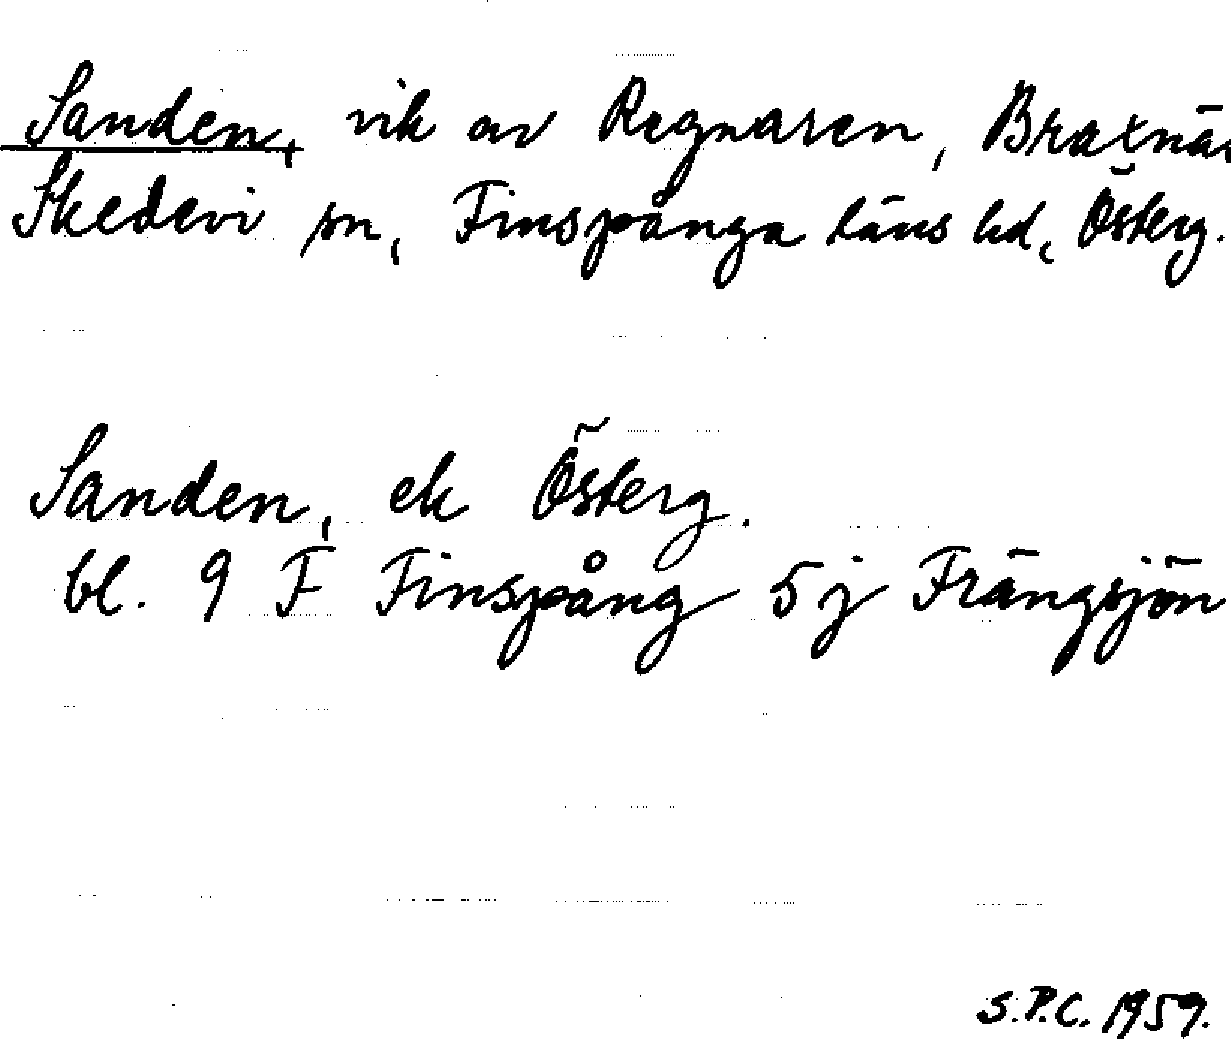 Sanden, vik av Regnaren, Braxnäs
Skedevi sn, Finspånga läns hd, Österg.
Sanden, ek Österg.
bl. 9 F Finspång 5 j Frängsjön
S.P.C. 1959.